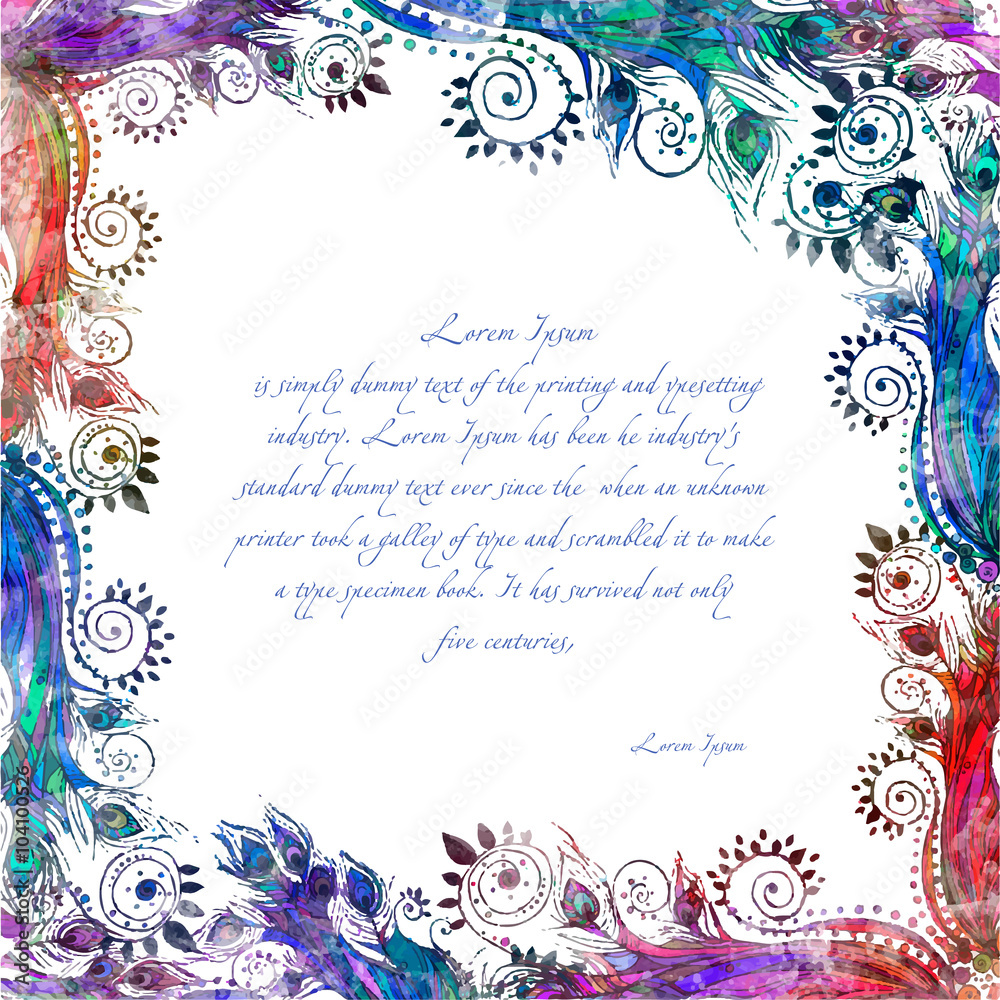 Lorem Ipsum
is simply dummy text of the printing and ypesetting
industry. Lorem Ipsum has been he industry's
standard dummy text ever since the when an unknown
printer took a galley of type and scrambled it to make
a type specimen book. It has survived not only
five centuries,
Lorem Ipsum
Adobe Stock | #104100526
Adobe Stock